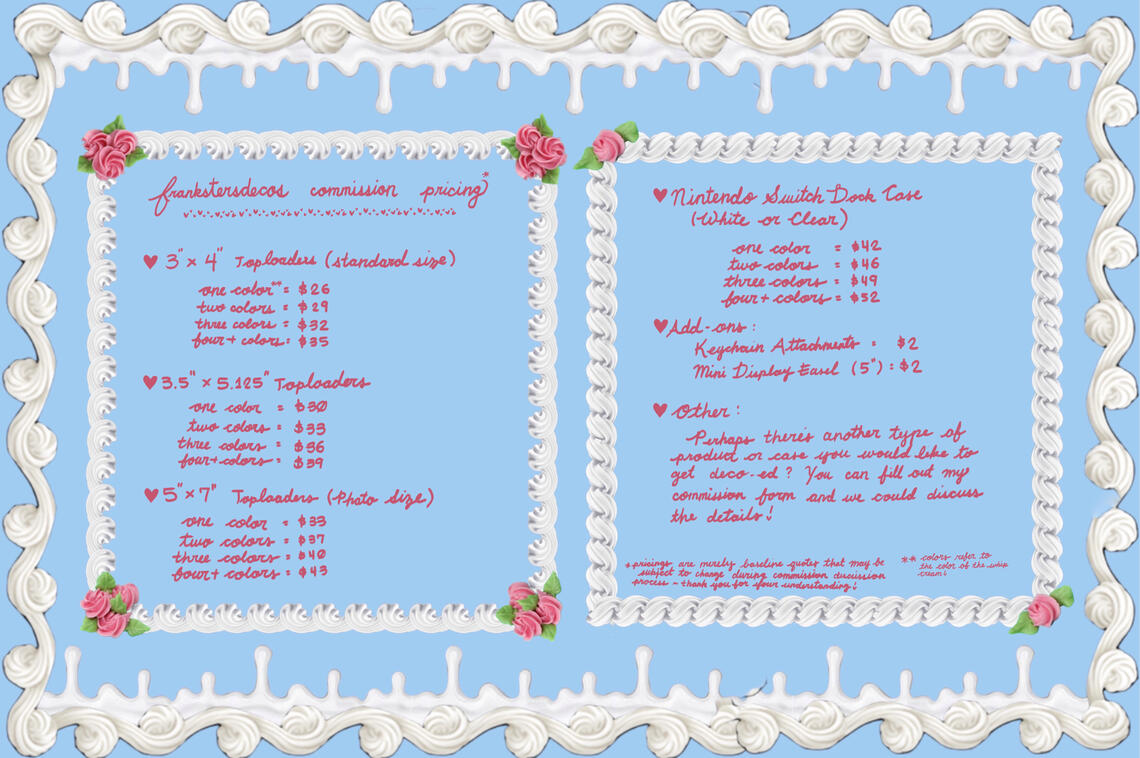 frankstersdecos commission pricing*
♥ 3" x 4" Toploaders (standard size)
one color** = $26
two colors = $29
three colors = $32
four+ colors = $35
♥ 3.5" x 5.125" Toploaders
one color = $30
two colors = $33
three colors = $36
four+ colors = $39
♥ 5" x 7" Toploaders (Photo size)
one color = $33
two colors = $37
three colors = $40
four+ colors = $43
♥ Nintendo Switch Dock Case
(White or Clear)
one color = $42
two colors = $46
three colors = $49
four+ colors = $52
♥ Add-ons :
Keychain Attachments = $2
Mini Display Easel (5") : $2
♥ Other :
Perhaps there's another type of
product or case you would like to
get deco-ed ? You can fill out my
commission form and we could discuss
the details!
*pricings are merely baseline quotes that may be
subject to change during commission discussion
process ~ thank you for your understanding!
** colors refer to
the color of the whip
cream!